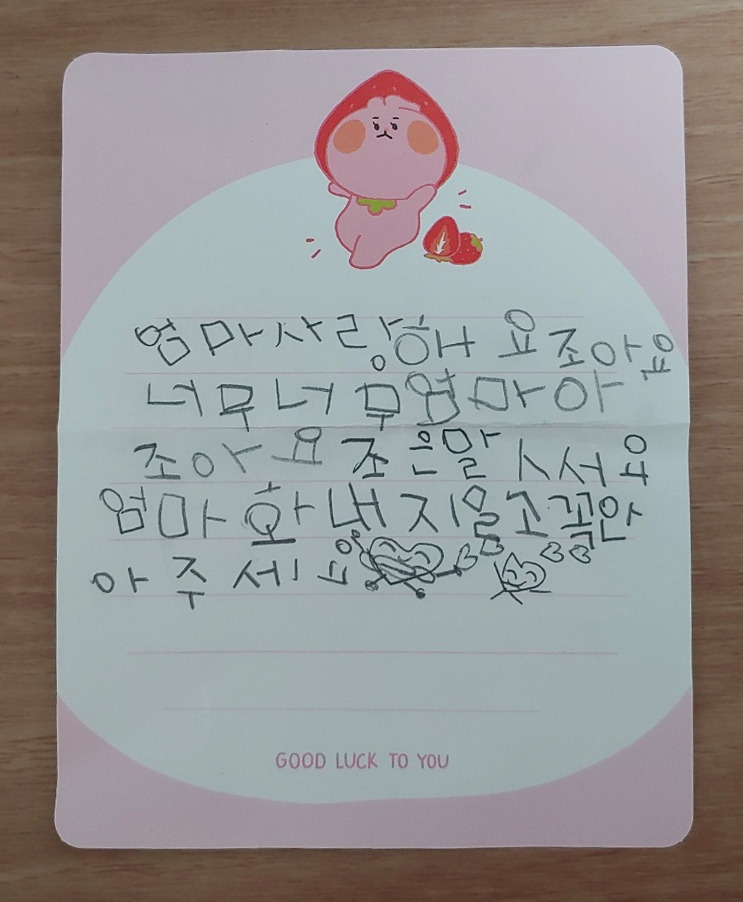 엄마사랑해요조아요
너무너무엄마아
조아요 조은말 스서요
엄마 화내지일고꼭안
아주세요
GOOD LUCK TO YOU